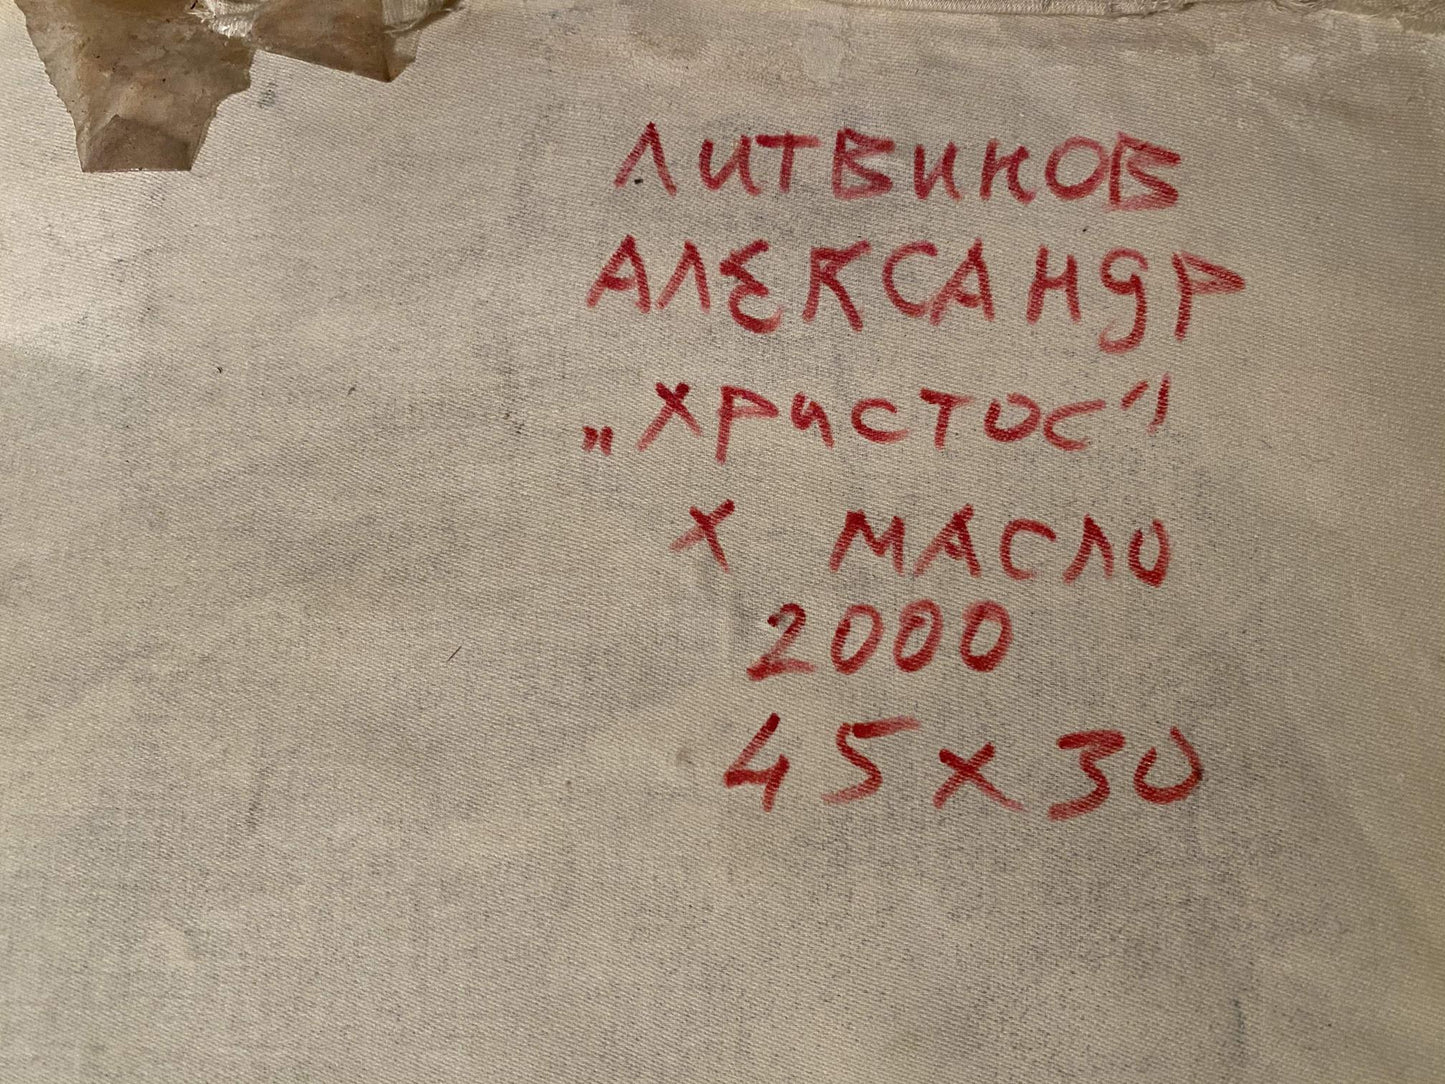 ЛИТВИНОВ
АЛЕКСАНДР
„ХРИСТОС"
Х МАСЛО
2000
45х30